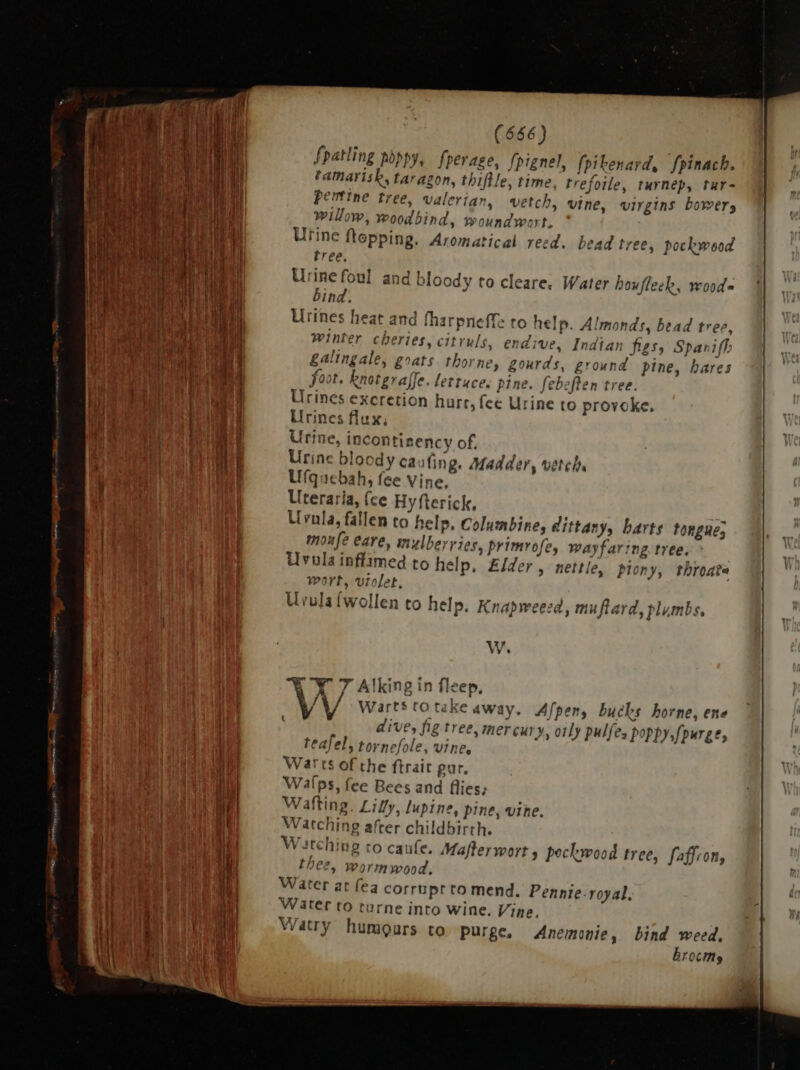 (666)
ſpatling poppy, ſperage, ſpignel, ſpikenard, ſpinach.
tamarisk, taragon, thiſtle, time, trefoile, turnep, tur-
pentine tree, valerian, vetch, vine, virgins bower,
willow, woodbind, woundwort.
Urine ſtopping. Aromatical reed. bead tree, pockwood
tree.
Urine foul and bloody to cleare. Water houſleek, wood-
bind.
Urines heat and ſharpneſſe to help. Almonds, bead tree,
winter cheries, citruls, endive, Indian figs, Spaniſh
galingale, goats thorne, gourds, ground pine, hares
foot. knotgraſſe. lettuce. pine. ſebeſten tree.
Urines excretion hurt, ſee Urine to provoke.
Urines flux.
Urine, incontinency of.
Urine bloody cauſing. Madder, vetch.
Uſquebah, ſee Vine.
Uteraria, ſee Hyſterick.
Uvula, fallen to help. Columbine, dittany, harts tongue,
mouſe eare, mulberries, primroſe, wayfaring tree.
Uvula inflamed to help. Elder, nettle, piony, throate
wort, violet.
Uvula ſwollen to help. Knapweeed, muſtard, plumbs.
W.
WAlking in ſleep.
Warts to take away. Aſpen, bucks horne, en-
dive, fig tree, mercury, oily pulſe, poppy, ſpurge,
teaſel, torneſole, vine.
Warts of the ſtrait gut.
Waſps, ſee Bees and flies.
Waſting. Lilly, lupine, pine, vine.
Watching after childbirth.
Watching to cauſe. Maſterwort, pockwood tree, ſaffron,
thee, wormwood.
Water at ſea corrupt to mend. Pennie-royal.
Water to turne into wine. Vine.
Watry humours to purge. Anemonie, bind weed,
broom,